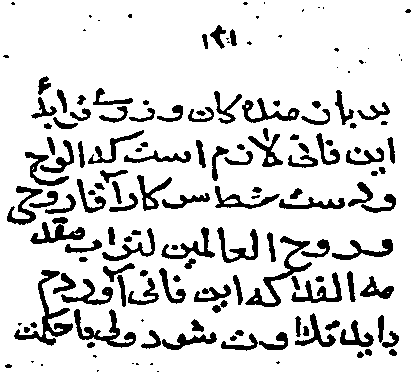 بر باز منده كان و
این فانی لازم است که الواح
و دست خط سرکار آقا روحی
و روح العالمین لتراب مقد
مه الفدا که این فانی آوردم
باید تلاوت شود ولی با حکمت